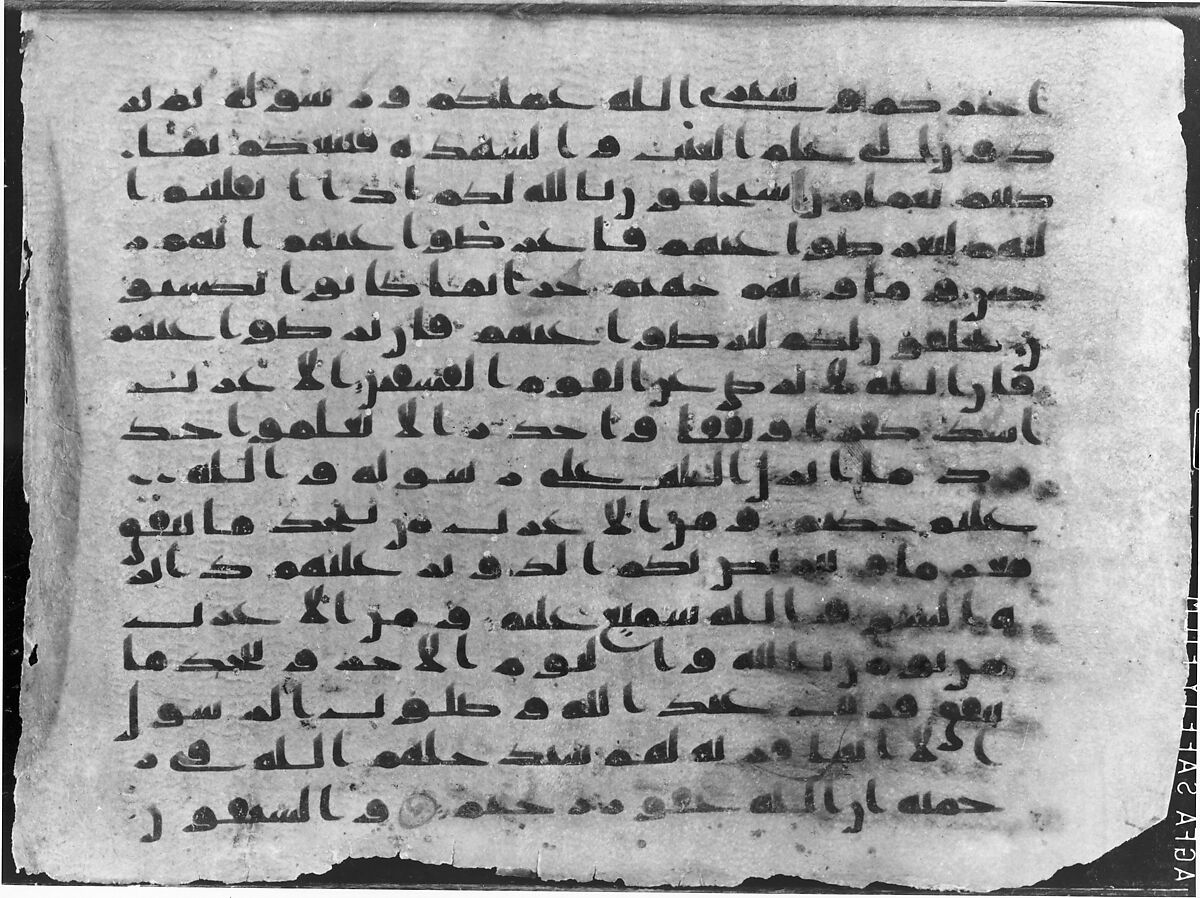 اخبركم وسيرى الله عملكم ورسوله ثم تر
دون الى علم الغيب والشهدة فينبئكم بما
كنتم تعملون سيحلفون بالله لكم اذا انقلبتم ا
ليهم لتعرضوا عنهم فاعرضوا عنهم انهم ر
جس وماويهم جهنم جزا بما كانوا يكسبو
ن يحلفون لكم لترضوا عنهم فان ترضوا عنهم
فان الله لا يرضى عن القوم الفسقين الاعراب
اشد كفرا ونفقا واجدر الا يعلموا حد
ود ما انزل الله على رسوله والله
عليم حكيم ومن الاعراب من يتخذ ما ينفق
مغرما ويتربص بكم الدوير عليهم داير
ة السو والله سميع عليم ومن الاعراب
من يومن بالله واليوم الاخر ويتخذ ما
ينفق قربت عند الله وصلوت الرسول
الا انها قربة لهم سيدخلهم الله في ر
حمته ان الله غفور رحيم والسبقون
AGFA SAFETY FILM